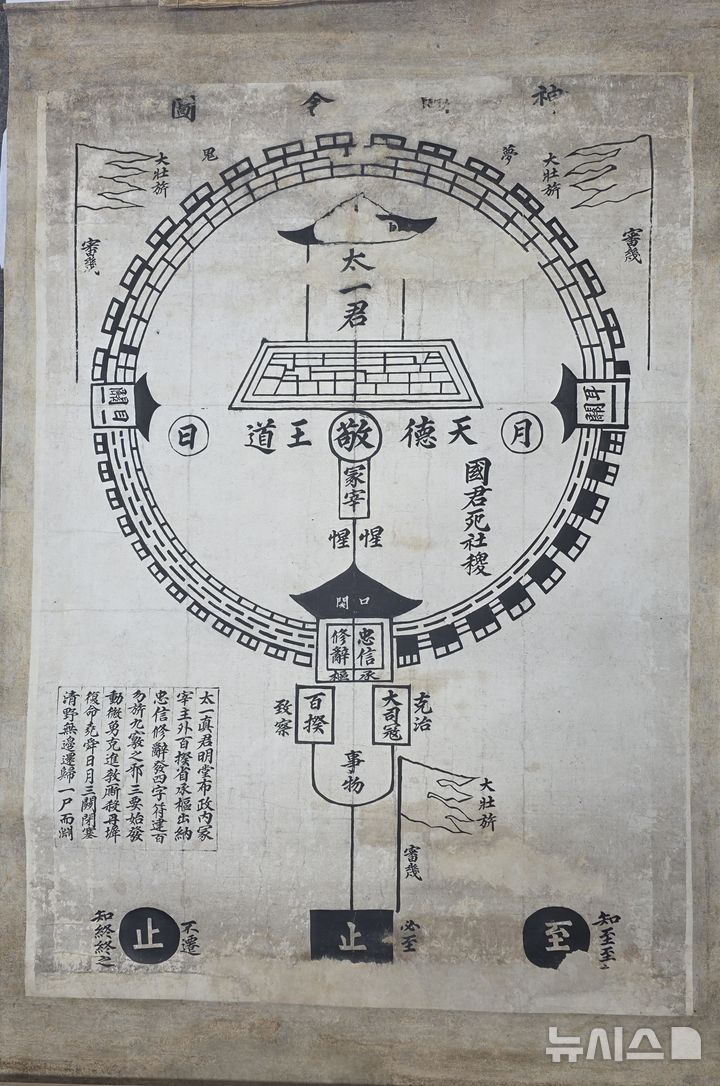 神 圖
夢 鬼
大壯旂
審幾
大壯旂
審幾
太一君
耳關
目關
月
天德
敬
王道
日
冢宰
國君死社稷
惺惺
口關
忠信
修辭
承樞
大司寇
克治
百揆
致察
事物
大壯旂
審幾
太一真君明堂布政內冢
宰主外百揆省承樞出納
忠信修辭發四字符建百
勿旂九竅之邪三要始發
動微勇克進教廝殺丹墀
復命堯舜日月三關閉塞
清野無邊還歸一尸而淵
知至至
至
必至
止
不遷
止
知終終之
뉴시스